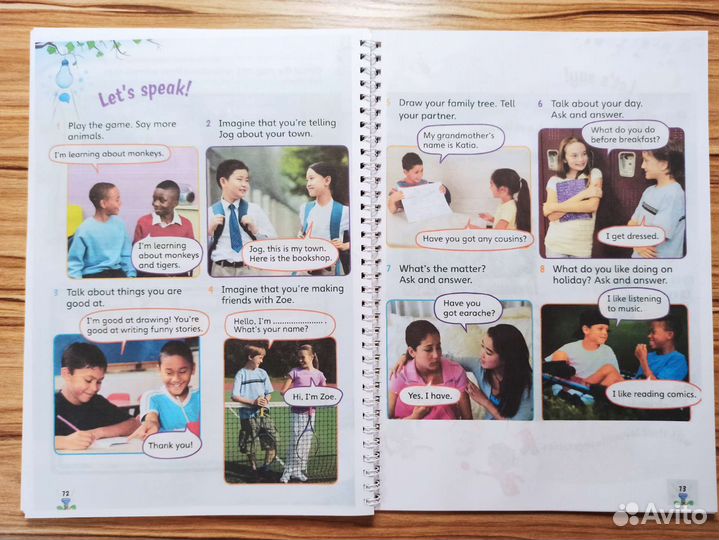 Let's speak!
1 Play the game. Say more
animals.
I'm learning about monkeys.
I'm learning
about monkeys
and tigers.
2 Imagine that you're telling
Jog about your town.
Jog, this is my town.
Here is the bookshop.
3 Talk about things you are
good at.
I'm good at drawing! You're
good at writing funny stories.
Thank you!
4 Imagine that you're making
friends with Zoe.
Hello, I'm ......................
What's your name?
Hi, I'm Zoe.
72
5 Draw your family tree. Tell
your partner.
My grandmother's
name is Katia.
Have you got any cousins?
6 Talk about your day.
Ask and answer.
What do you do
before breakfast?
I get dressed.
7 What's the matter?
Ask and answer.
Have you
got earache?
Yes, I have.
8 What do you like doing on
holiday? Ask and answer.
I like listening
to music.
I like reading comics.
73
Avito